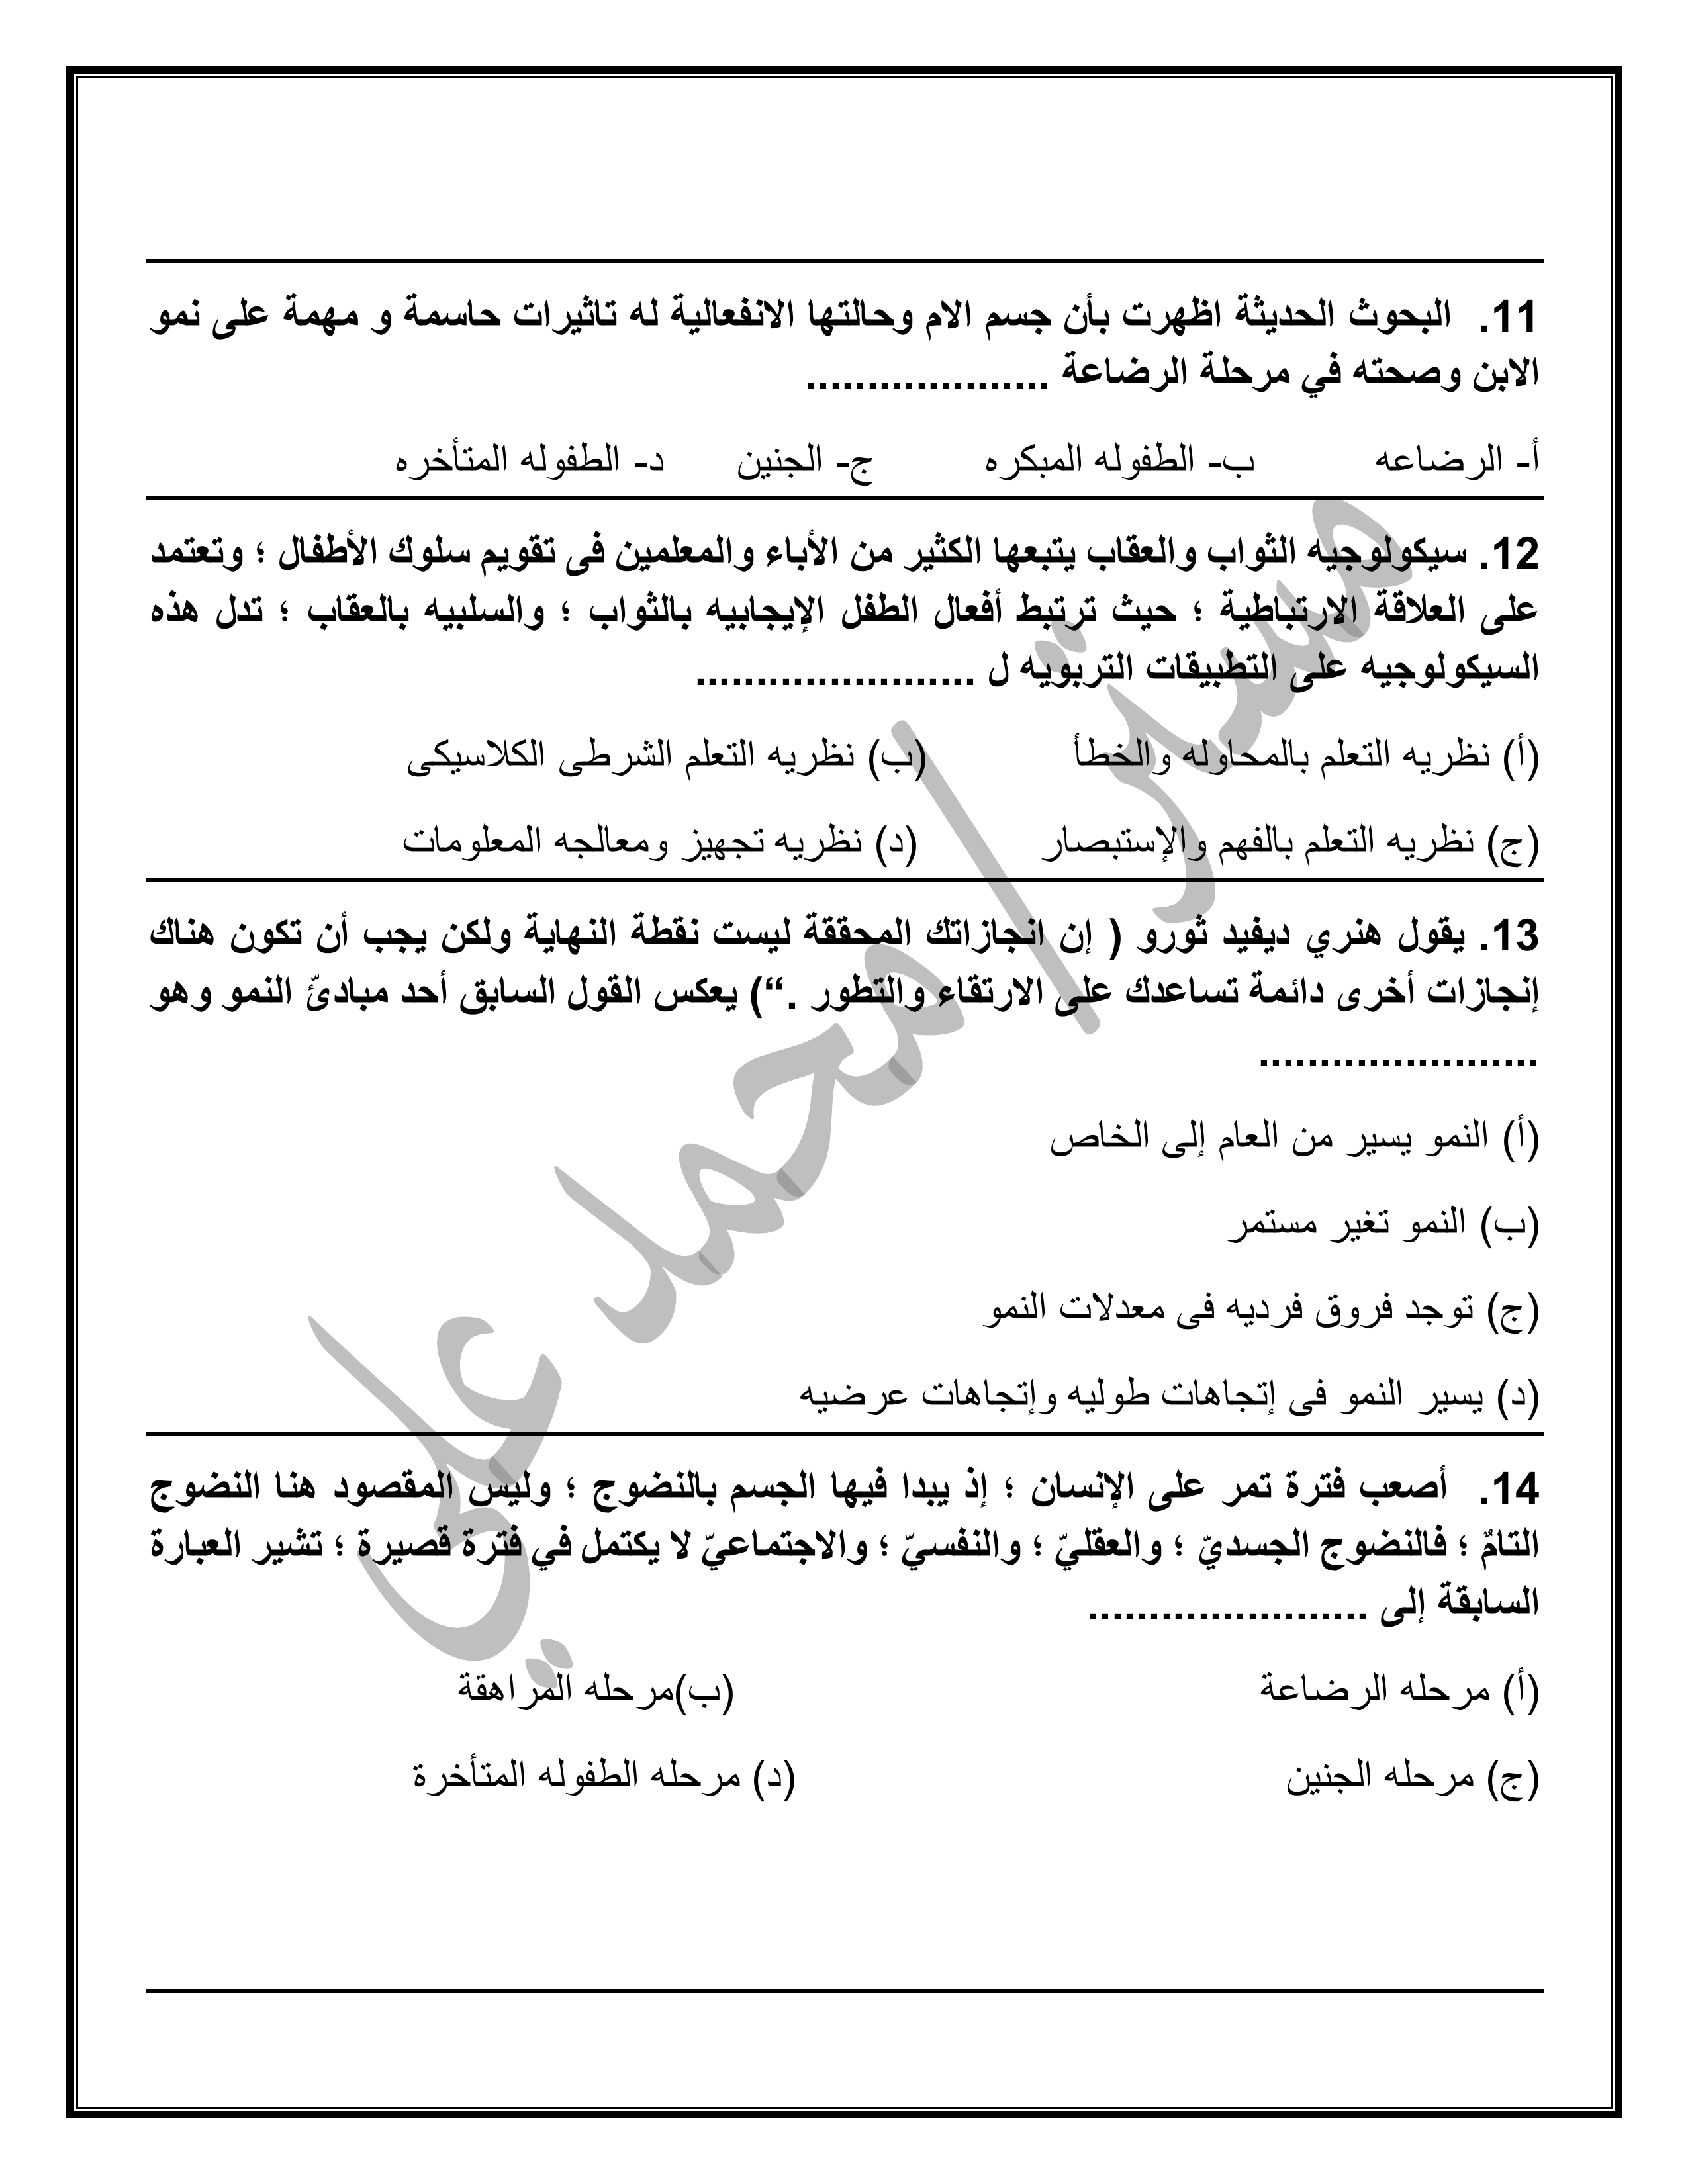 11. البحوث الحديثة اظهرت بأن جسم الام وحالتها الانفعالية له تاثيرات حاسمة و مهمة على نمو
الابن وصحته في مرحلة الرضاعة ....................
أ- الرضاعه ب- الطفوله المبكره ج- الجنين د- الطفوله المتأخره
12. سيكولوجيه الثواب والعقاب يتبعها الكثير من الأباء والمعلمين فى تقويم سلوك الأطفال ؛ وتعتمد
على العلاقة الارتباطية ؛ حيث ترتبط أفعال الطفل الإيجابيه بالثواب ؛ والسلبيه بالعقاب ؛ تدل هذه
السيكولوجيه على التطبيقات التربويه ل .......................
(أ) نظريه التعلم بالمحاوله والخطأ (ب) نظريه التعلم الشرطى الكلاسيكى
(ج) نظريه التعلم بالفهم والإستبصار (د) نظريه تجهيز ومعالجه المعلومات
13. يقول هنري ديفيد ثورو ( إن انجازاتك المحققة ليست نقطة النهاية ولكن يجب أن تكون هناك
إنجازات أخرى دائمة تساعدك على الارتقاء والتطور .“) يعكس القول السابق أحد مبادئ النمو وهو
.......................
(أ) النمو يسير من العام إلى الخاص
(ب) النمو تغير مستمر
(ج) توجد فروق فرديه فى معدلات النمو
(د) يسير النمو فى إتجاهات طوليه وإتجاهات عرضيه
14. أصعب فترة تمر على الإنسان ؛ إذ يبدا فيها الجسم بالنضوج ؛ وليس المقصود هنا النضوج
التامٌ ؛ فالنضوج الجسديّ ؛ والعقليّ ؛ والنفسيّ ؛ والاجتماعيّ لا يكتمل في فترة قصيرة ؛ تشير العبارة
السابقة إلى .......................
(أ) مرحله الرضاعة (ب)مرحله المراهقة
(ج) مرحله الجنين (د) مرحله الطفوله المتأخرة
مستر/محمد علي